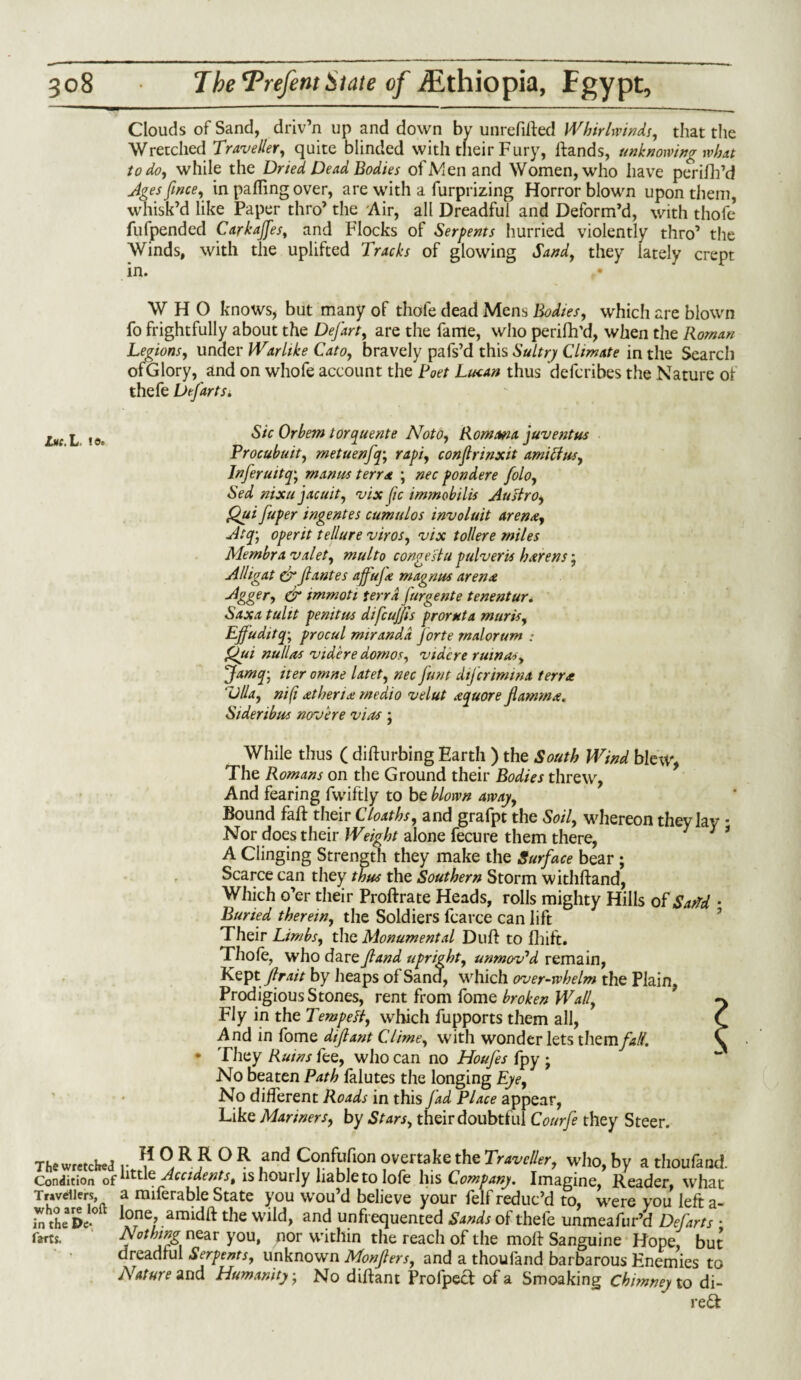 308 The Preſent State of Æthiopia, Egypt,
Clouds of Sand, driv’n up and down by unreſiſted Whirlwinds, that the
Wretched Traveller, quite blinded with their Fury, ſtands, unknowing what
to do, while the Dried Dead Bodies of Men and Women, who have periſh’d
Ages ſince, in paſſing over, are with a ſurprizing Horror blown upon them,
whisk’d like Paper thro’ the Air, all Dreadful and Deform’d, with thoſe
ſuſpended Carkaſſes, and Flocks of Serpents hurried violently thro’ the
Winds, with the uplifted Tracks of glowing Sand, they lately crept
in.
WHO knows, but many of thoſe dead Mens Bodies, which are blown
ſo frightfully about the Deſart, are the ſame, who periſh’d, when the Roman
Legions, under Warlike Cato, bravely paſs’d this Sultry Climate in the Search
of Glory, and on whoſe account the Poet Lucan thus deſcribes the Nature of
theſe Deſarts.
Luc. L. 10.
Sic Orbem torquente Noto, Romana juventus
Procubuit, metuenſq; rapi, conſtrinxit amictus,
Inſeruitq; manus terræ ; nec pondere ſolo,
Sed nixu jacuit, vix ſic immobilis Auſtro,
Qui ſuper ingentes cumulos involuit arenæ,
Atq; operit tellure viros, vix tollere miles
Membra valet, multo congeſtu pulveris hærens;
Alligat & ſtantes affuſæ magnus arenæ
Agger, & immoti terrâ ſurgente tenentur.
Saxa tulit penitus diſcuſſis proruta muris,
Effuditq; procul mirandâ ſorte malorum :
Qui nullas vidêre domos, vidêre ruinas,
Jamq; iter omne latet, nec ſunt diſcrimina terræ
Ulla, niſi ætheriæ medio velut æquore flammæ.
Sideribus novêre vias ;
While thus ( diſturbing Earth ) the South Wind blew,
The Romans on the Ground their Bodies threw,
And fearing ſwiftly to be blown away,
Bound faſt their Cloaths, and graſpt the Soil, whereon they lay ;
Nor does their Weight alone ſecure them there,
A Clinging Strength they make the Surface bear ;
Scarce can they thus the Southern Storm withſtand,
Which o’er their Proſtrate Heads, rolls mighty Hills of Sand ;
Buried therein, the Soldiers ſcarce can lift
Their Limbs, the Monumental Duſt to ſhift.
Thoſe, who dare ſtand upright, unmov’d remain,
Kept ſtrait by heaps of Sand, which over-whelm the Plain,
Prodigious Stones, rent from ſome broken Wall,
Fly in the Tempeſt, which ſupports them all,
And in ſome diſtant Clime, with wonder lets them fall.
They Ruins ſee, who can no Houſes ſpy ;
No beaten Path ſalutes the longing Eye,
No different Roads in this ſad Place appear,
Like Mariners, by Stars, their doubtful Courſe they Steer.
The wretched
Condition of
Travellers,
who are loſt
in the De-
ſarts.
HORROR and Confuſion overtake the Traveller, who, by a thouſand
little Accidents, is hourly liable to loſe his Company. Imagine, Reader, what
a miſerable State you wou’d believe your ſelf reduc’d to, were you left a-
lone, amidſt the wild, and unfrequented Sands of theſe unmeaſur’d Deſarts ;
Nothing near you, nor within the reach of the moſt Sanguine Hope, but
dreadful Serpents, unknown Monſters, and a thouſand barbarous Enemies to
Nature and Humanity ; No diſtant Proſpect of a Smoaking Chimney to di-
rect